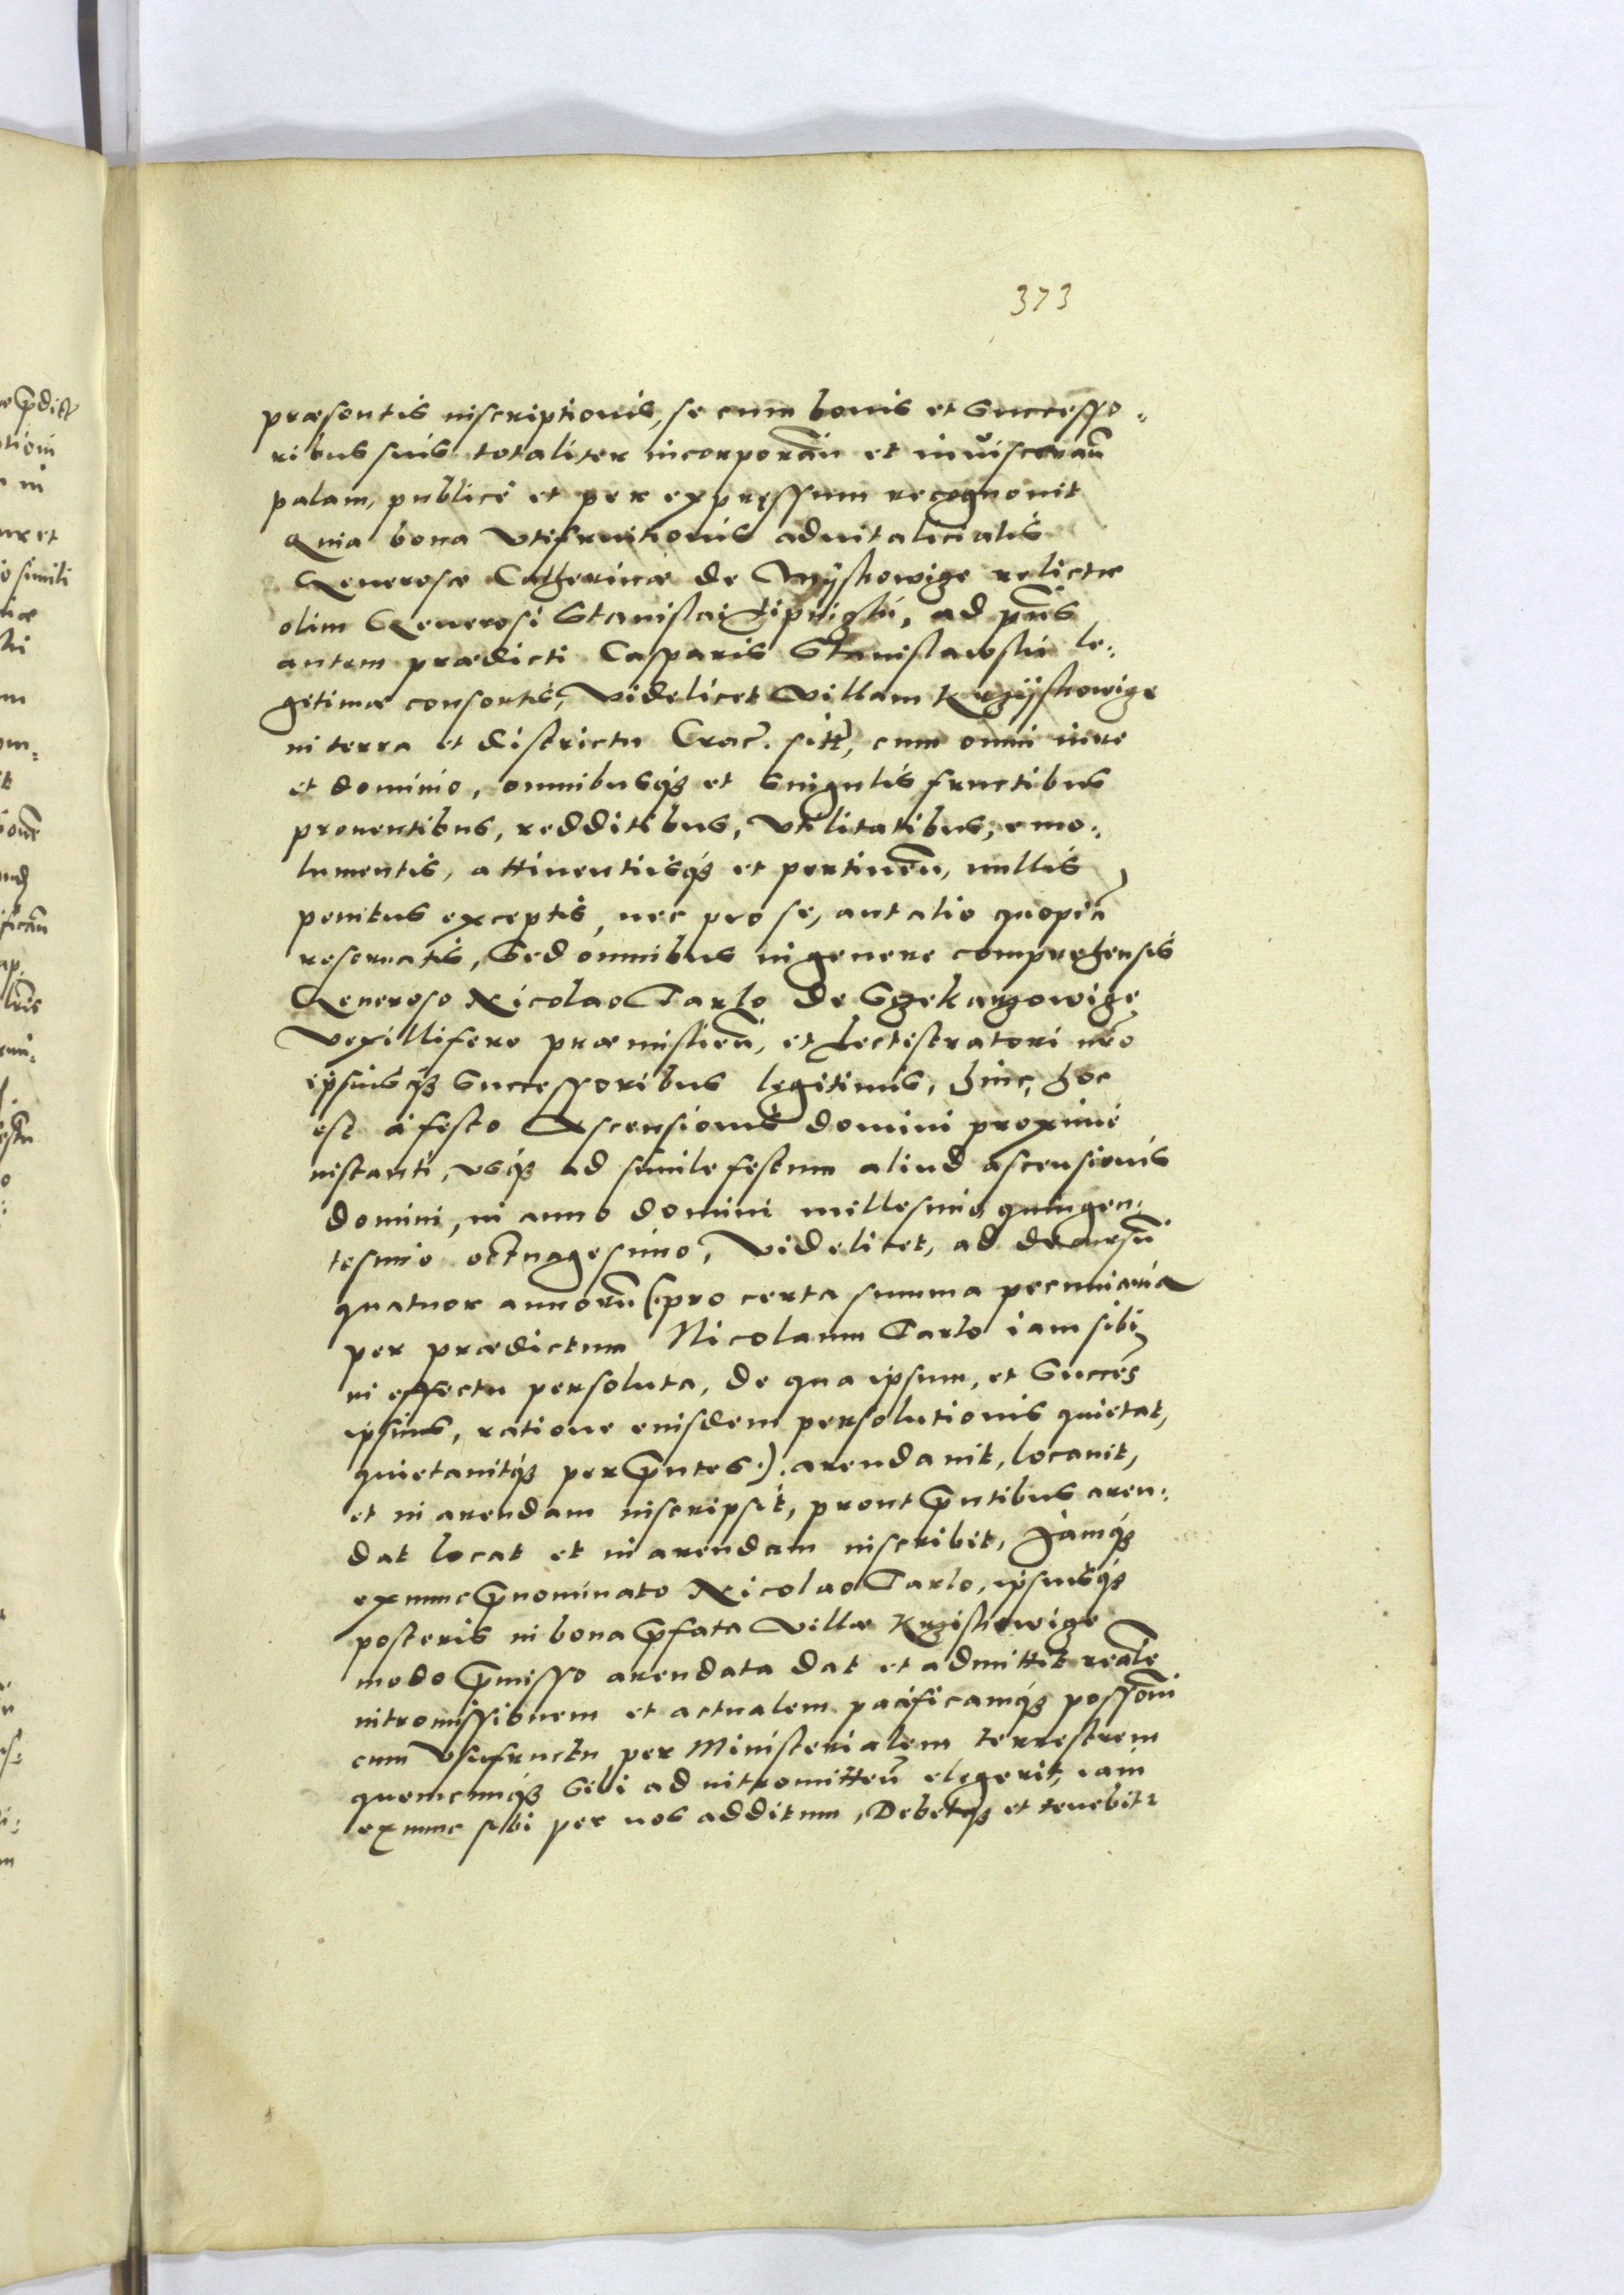 373
præsentis inscriptionis, se cum bonis et Successo:
ribus suis totaliter incorporan̄ et invisceran̄
palam, publicè et per expressum recognovit
Quia bona Utifruitionis advitalicialis
Generosæ Catherinæ de Myszkowicze relictæ
olim Generosi Stanislai Lipniczki, ad pn̄s
autem prædicti Casparis Stanislawski le:
gitimæ consortis, videlicet Villam Krzÿszkowicze
in terra et districtu Crac̄. sitt̄, cum omni iure
et dominio, omnibusq; et Singulis fructibus
proventibus, redditibus, utilitatibus, emo:
lumentis, attinentiisq; et pertinen̄, nullis
penitus exceptis, nec pro se, aut alio quopiā
reservatis, Sed omnibus in genere comprehensis
Generoso Nicolao Tarlo de Sczekarzowicze
Vexillifero præmislien̄, et Lectistratori nr̄o
ipsiusq; Successoribus legitimis, hinc, hoc
est à festo Ascensionis domini proximè
instanti, usq; ad simile festum aliud ascensionis
domini, in anno domini millesimo quingen:
tesimo octuagesimo, videlicet, ad decursū
quatuor annorū (:pro certa summa pecuniaria
per prædictum Nicolaum Tarlo iam sibi
in effectu persoluta, de qua ipsum, et Succes̄
ipsius, ratione eiusdem persolutionis quietat,
quietavitq; per p̄ntes:). arendavit, locavit,
et in arendam inscripsit, prout p̄ntibus aren:
dat locat et in arendam inscribit, Jamq;
exnunc p̄nominato Nicolao Tarlo, ipsiusq;
posteris in bona p̄fata Villæ Krziszkowicze
modo p̄misso arendata dat et admittit realē
intromissionem et actualem pacificamq; possōni
cum Usufructu per Ministerialem terrestrem
quemcunq; Sibi ad intromitten̄ elegerit, iam
exnunc sibi per nos additum, Debetq; et tenebitr